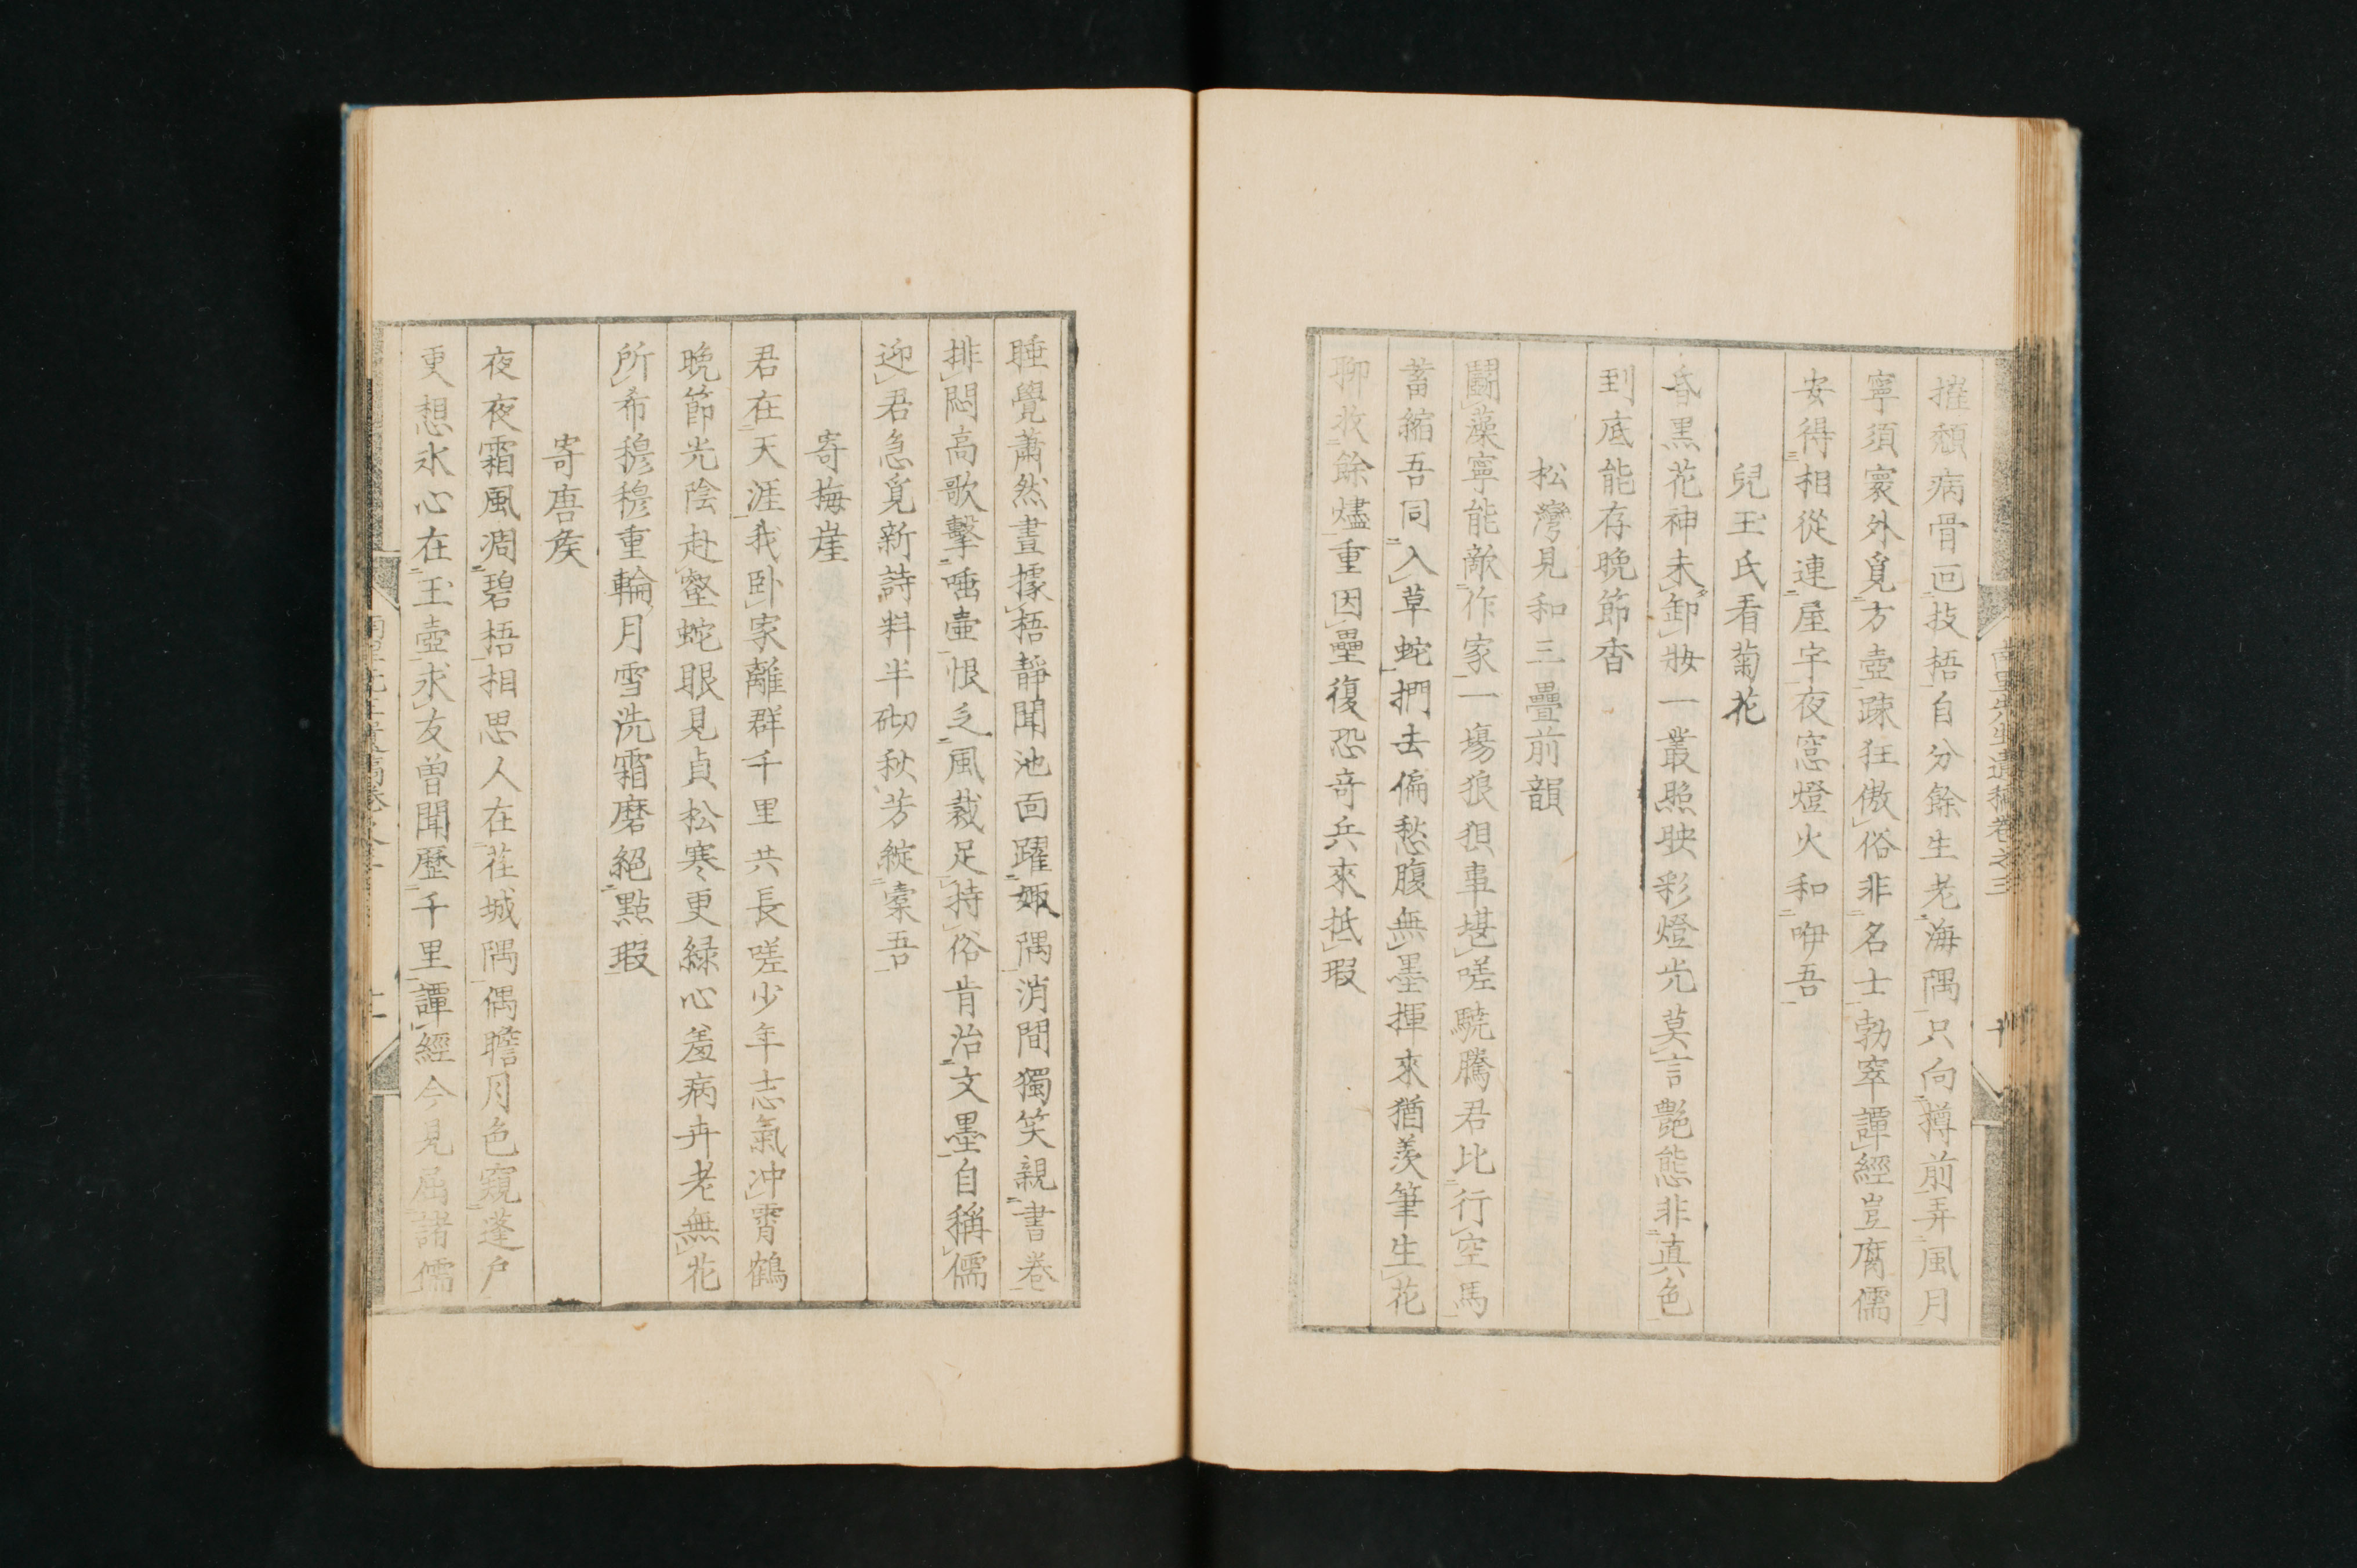 摧頹病骨回技梧自分餘生老海隅只向樽前弄風月
寧須寰外覓方壺踈狂傲俗非名士勃窣譚經豈腐儒
安得相從連屋宇夜窓燈火和咿吾
兒玉氏看菊花
昏黑花神未卸妝一叢照映彩燈光莫言艷態非真色
到底能存晚節香
松灣見和三疊前韻
鬪藻寧能敵作家一場狼狽事堪嗟驍騰君比行空馬
蓄縮吾同入草蛇捫去偏愁腹無墨揮來猶羨筆生花
聊收餘燼重因壘復恐奇兵來抵瑕
南里先生遺稿卷之三
十
睡覺蕭然晝據梧靜聞池面躍娵隅消閒獨笑親書卷
排悶高歌擊唾壷恨乏風裁足持俗肯治文墨自稱儒
迎君急覓新詩料半砌秋芳綻槖吾
寄梅崖
君在天涯我臥家離群千里共長嗟少年志氣冲霄鶴
晚節光陰赴壑蛇眼見貞松寒更緑心羞病卉老無花
所希穆穆重輪月雪洗霜磨絕點瑕
寄唐矦
夜夜霜風凋碧梧相思人在荏城隅偶瞻月色窺蓬戶
更想氷心在玉壺求友曾聞歷千里譚經今見屈諸儒